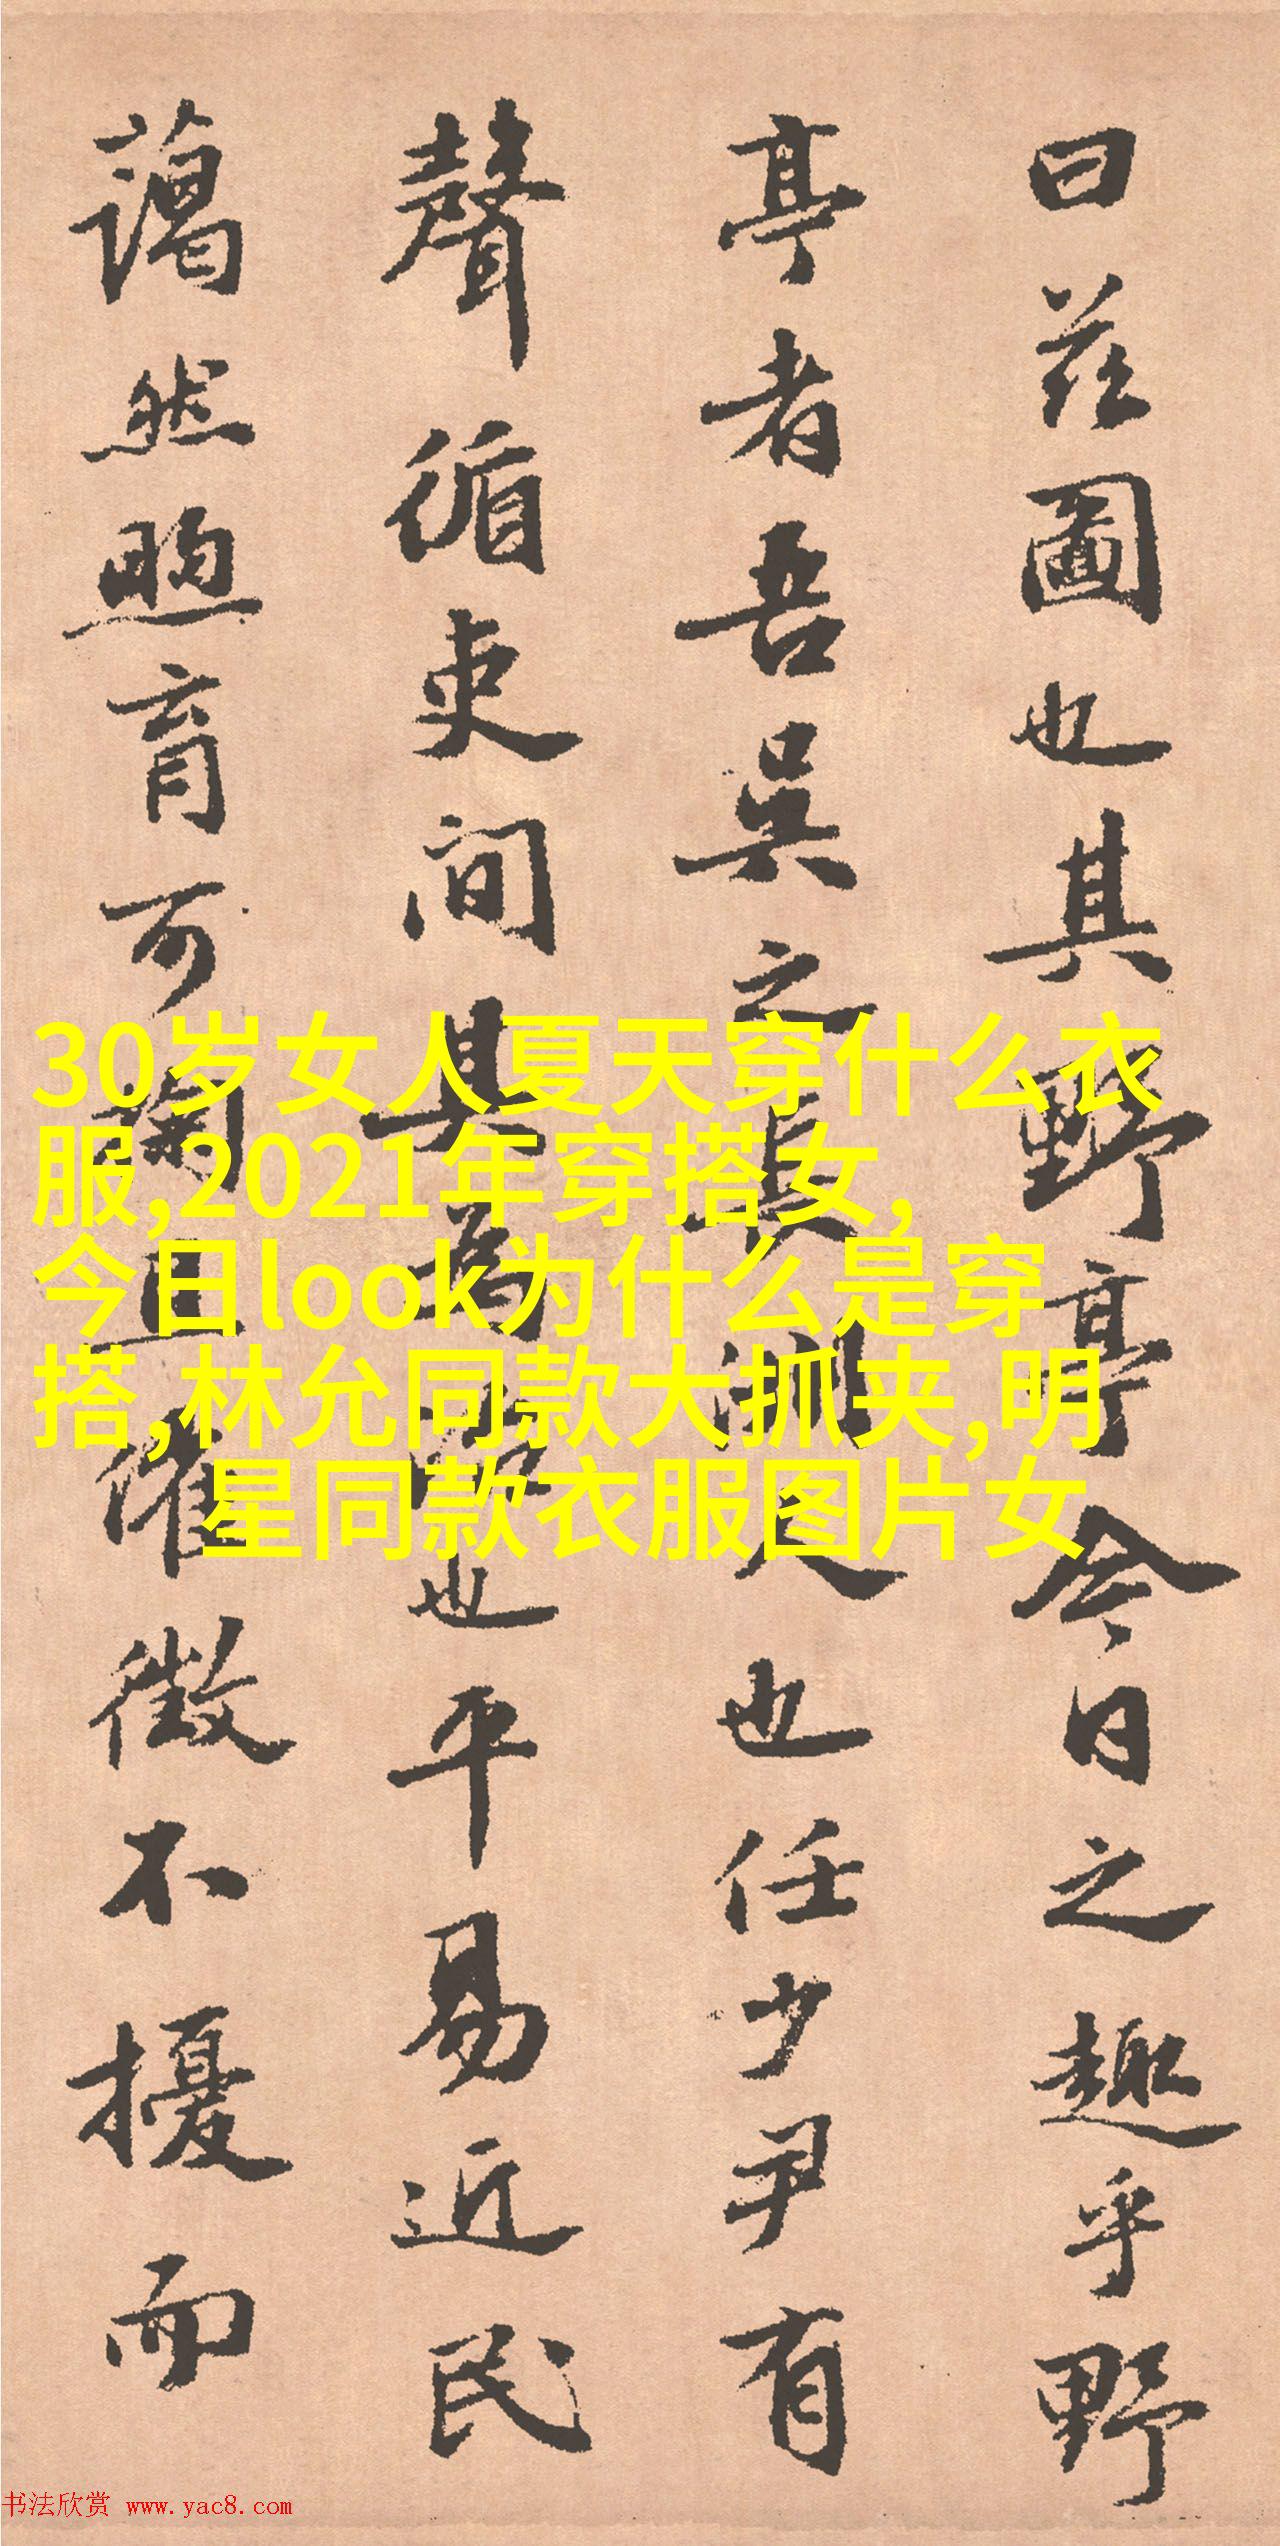 曰茲圖也其野亭今日之趣乎野
亭者吾吳之長洲人也任少尹有
聲循吏间其為政也平易近民
藹然煦育可掬且催徵不擾而
30岁女人夏天穿什么衣
服,2021年穿搭女,
今日look为什么是穿
搭,林允同款大抓夹,明
星同款衣服图片女
书法欣赏 www.yac8.com